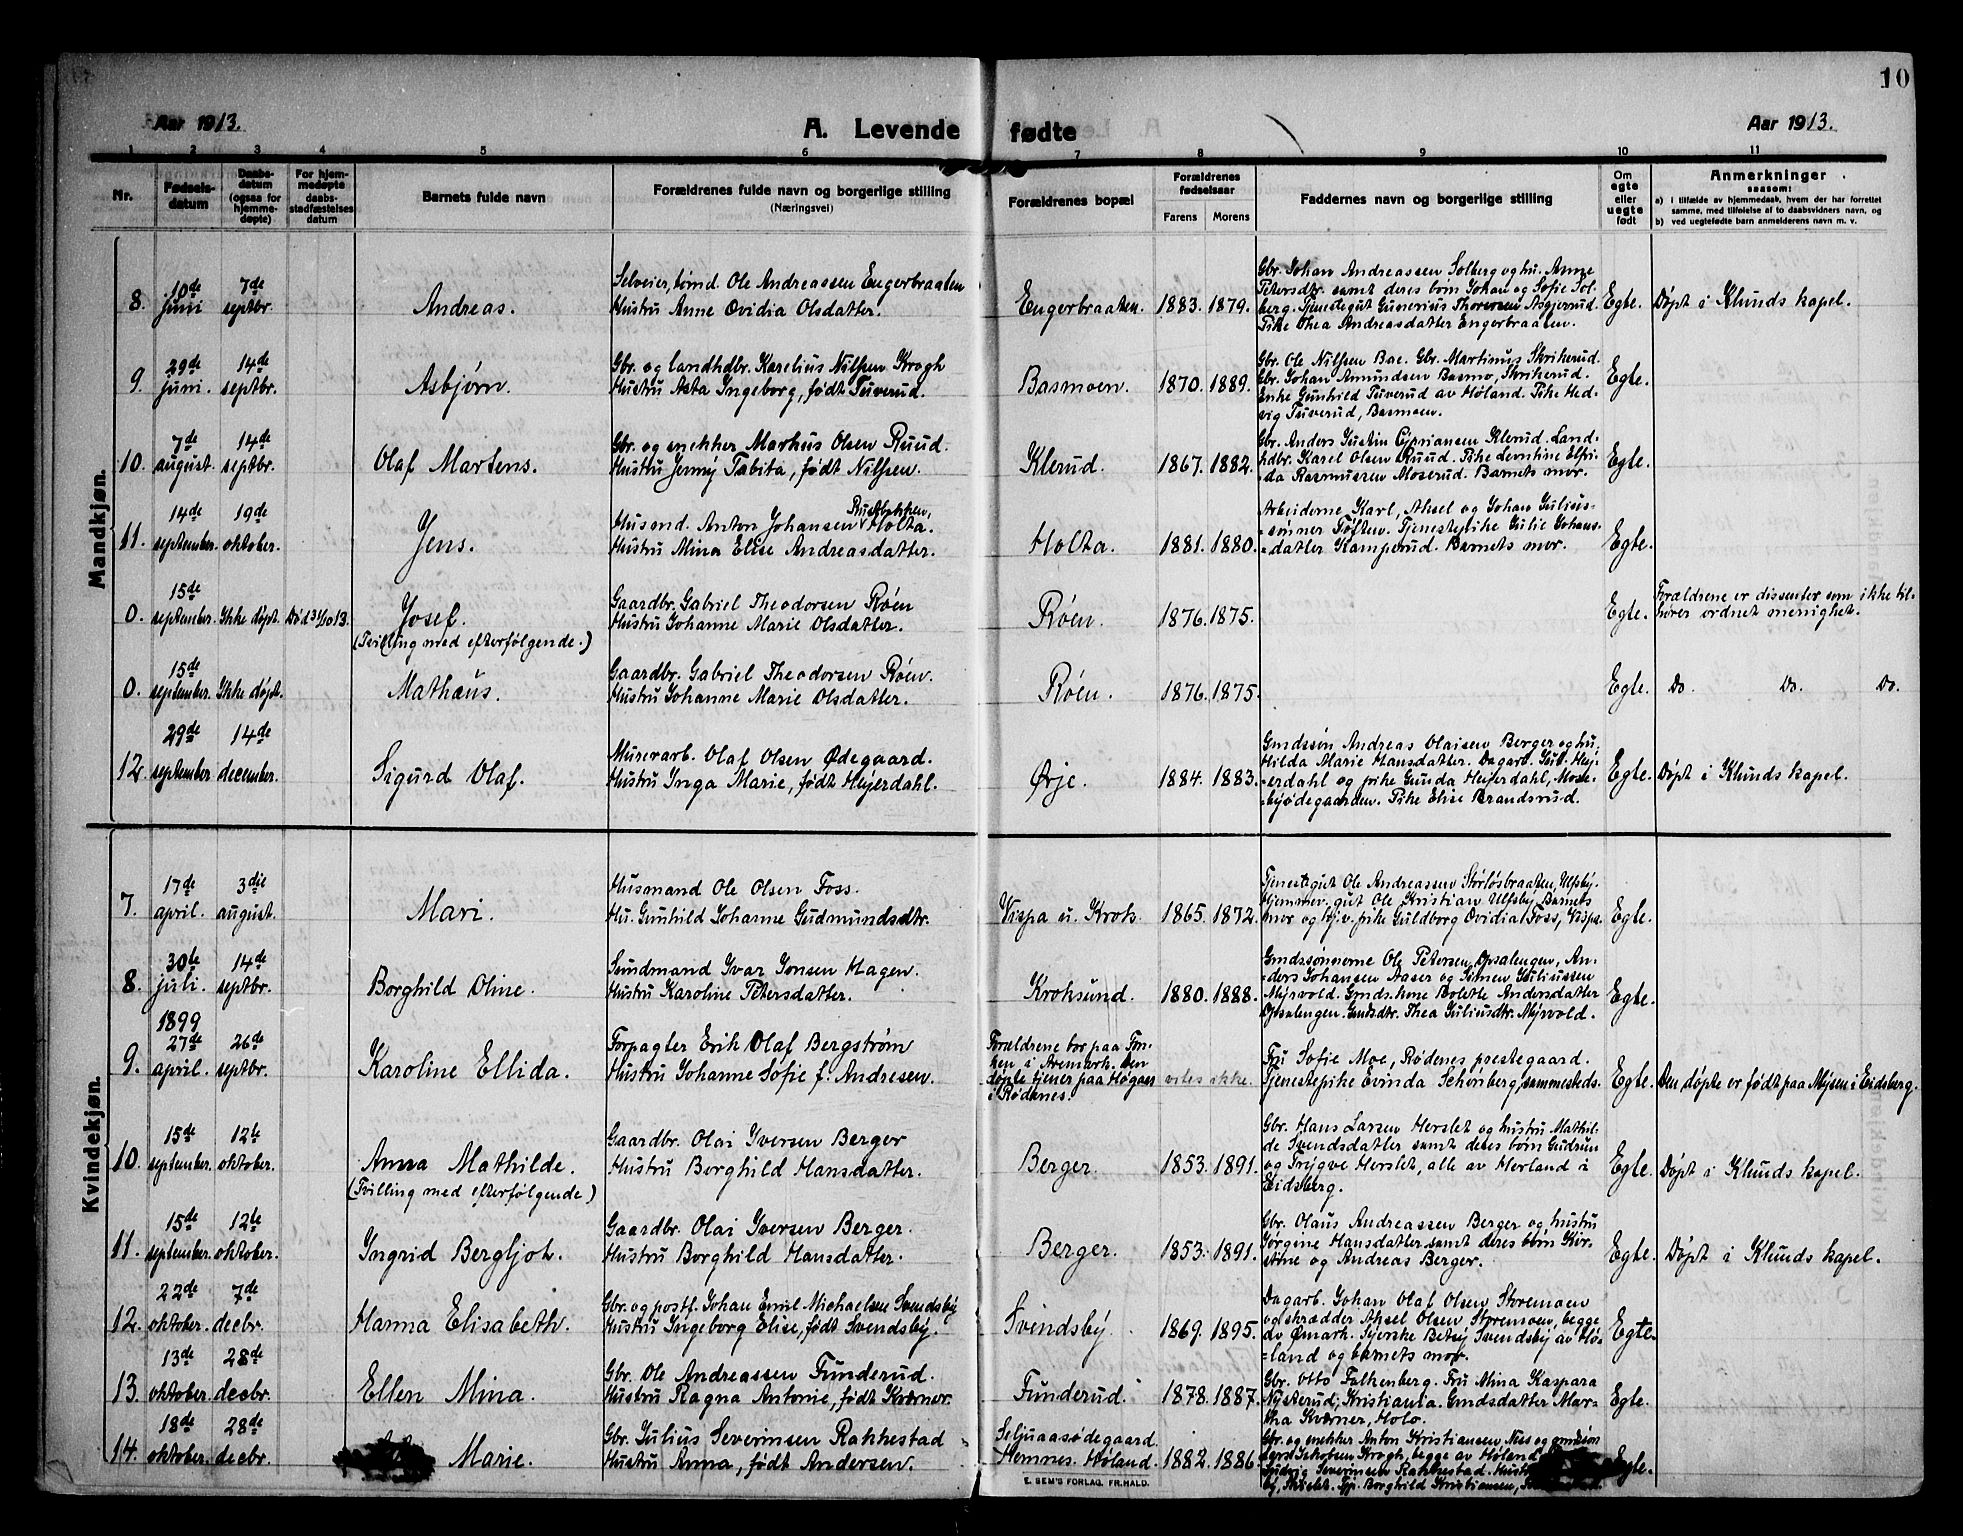 10
Aar 1913. A. Levende fødte Aar 1913.
1 2 3 4 5 6 7 8 9 10 11
Nr.
Fødsels-
datum
Daabs-
datum
(ogsaa for
hjemme-
døpte)
For hjem-
medøpte
daabs-
stadfæstelses
datum
Barnets fulde navn
Forældrenes fulde navn og borgerlige stilling
(Næringsvei)
Forældrenes bopæl
Forældrenes
fødselsaar
Farens Morens
Faddernes navn og borgerlige stilling
Om
egte
eller
uegte
født
Anmerkninger
saasom:
a) i tilfælde av hjemmedaab, hvem der har forrettet
samme, med tilføielse af to daabsvidners navn, og
b) ved uegtefødte barn anmelderens navn m. v.
Mandkjøn.
8. 10de juni 7de septbr.
Andreas.
Selveier, tømd. Ole Andreassen Engerbraaten
Hustru Anne Ovidia Olsdatter.
Engerbraaten. 1883. 1879.
Gbr. Johan Andreassen Solberg og hu. Anne
Petersdtr. samt deres børn Johan og Sofie Sol-
berg. Tjenestegut Gunerius Thoresen Asgjerud.
Pike Thea Andreasdatter Engerbraaten.
Egte. Døpt i Klunds kapel.
9. 29de juni. 14de septbr.
Asbjørn.
Gbr. og landhdbr. Karelius Nilsen Krogh
Hustru Asta Ingeborg, født Tuverud.
Basmoen. 1870. 1889.
Gbr. Ole Nilsen Bae. Gbr. Martinus Skrikerud.
Gbr. Johan Amundsen Basmo, Skrikerud.
Enke Gunhild Tuverud av Høland. Pike Hed-
vig Tuverud, Basmoen.
Egte.
10. 7de august. 14de septbr.
Olaf Martens.
Gbr. og snekker Markus Olsen Ruud.
Hustru Jenny Tabita, født Nilsen.
Klerud. 1867. 1882.
Gbr. Anders Justin Cypriansen Klerud. Land-
hdbr. Karel Olsen Ruud. Pike Leontine Elfri-
da Rasmussen Moserud. Barnets mor.
Egte.
11. 14de september. 19de oktober.
Jens.
Rustbakken,
Husmd. Anton Johansen Holta.
Hustru Mina Elise Andreasdatter.
Holta. 1881. 1880.
Arbeiderne Karl, Aksel og Johan Julius-
sønner Toften. Tjenestepike Julie Johans-
datter Kamperud. Barnets mor.
Egte.
0. 15de september. Ikke døpt. Død 31/10 13.
Josef.
(Tvilling med efterfølgende.)
Gaardbr. Gabriel Theodorsen Røen
Hustru Johanne Marie Olsdatter.
Røen. 1876. 1875.
Egte.
Forældrene er dissenter som ikke til-
hører ordnet menighet.
0. 15de september. Ikke døpt.
Mathæus.
Gaardbr. Gabriel Theodorsen Røen.
Hustru Johanne Marie Olsdatter.
Røen. 1876. 1875.
Egte. Do. Do. Do.
12. 29de september 14de december.
Sigurd Olaf.
Murerarb. Olaf Olsen Ødegaard.
Hustru Inga Marie, født Heyerdahl.
Ørje. 1884. 1883.
Gmdssøn Andreas Olaisen Berger og hu.
Hilda Marie Hansdatter. Dagarb. Gul. Hey-
erdahl og pike Gunda Heyerdahl, Mose-
byødegaarden. Pike Elise Brandsrud.
Egte. Døpt i Klunds kapel.
Kvindekjøn.
7. 17de april. 3die august.
Mari.
Husmand Ole Olsen Foss.
Hu. Gunhild Johanne Gudmundsdtr.
Vispa u. Krok. 1865. 1872.
Tjenestegut Ole Andreassen Storløsbraaten, Ulfsby.
Hjemmev. gut Ole Kristian Ulfsby. Barnets
mor og hjv. pike Guldborg Ovidia Foss, Vispa.
Egte.
8. 30te juli. 14de septbr.
Borghild Oline.
Sundmand Ivar Jonsen Hagen.
Hustru Karoline Petersdatter.
Kroksund. 1880. 1888.
Gmdssønnerne Ole Petersen Opsalengen, An-
ders Johansen Aaser og Simen Juliussen
Myrvold. Gmds. kone Bolette Andersdatter
Opsalengen. Gmdsdtr. Thea Juliusdtr. Myrvold.
Egte.
9. 1899 27de april. 26de septbr.
Karoline Ellida.
Forpagter Erik Olaf Bergstrøm
Hustru Johanne Sofie f. Andresen.
Forældrene bor paa Fos-
ken i Aremark. Den
døpte tjener paa Høgaas
i Rødenes.
vites ikke.
Fru Sofie Moe, Rødenes prestegaard.
Tjenestepike Evinda Schønberg, sammesteds.
Egte. Den døpte er født paa Mysen i Eidsberg.
10. 15de september. 12te oktober.
Anna Mathilde.
(Tvilling med efterfølgende)
Gaardbr. Olai Iversen Berger
Hustru Borghild Hansdatter.
Berger. 1853. 1891.
Gbr. Hans Larsen Herslet og hustru Mathil-
de Svendsdatter samt deres børn Gudrun
og Trygve Herslet, alle av Herland i
Eidsberg.
Egte. Døpt i Klunds kapel.
11. 15de september. 12te oktober.
Ingrid Bergljot.
Gaardbr. Olai Iversen Berger.
Hustru Borghild Hansdatter.
Berger. 1853. 1891.
Gbr. Olaus Andreassen Berger og hustru
Jørgine Hansdatter samt deres børn Kir-
stine og Andreas Berger.
Egte. Døpt i Klunds kapel.
12. 22de oktober. 7de decbr.
Hanna Elisabeth.
Gbr. og postf. Johan Emil Michaelsen Svendsby
Hustru Ingeborg Elise, født Svendsby.
Svendsby. 1869. 1895.
Dagarb. Johan Olaf Olsen Storemoen
og skrædder Aksel Olsen Storemoen, begge
av Ømark. Syerske Betsy Svendsby av Hø-
land og barnets mor.
Egte.
13. 13de oktober. 28de decbr.
Ellen Mina.
Gbr. Ole Andreassen Funderud.
Hustru Ragna Antonie, født Kværner.
Funderud. 1878. 1887.
Gbr. Otto Falkenberg. Fru Mina Kaspara
Nysterud, Kristiania. Gmdsdatter Mar-
tha Kværner, Holo.
Egte.
14. 18de oktober. 28de decbr.
Marie.
Gbr. Julius Severinsen Rakkestad
Hustru Anna, født Andersen.
Seljuaasødegaard.
Hemnes. Høland. 1882. 1886.
Gbr. og snekker Anton Kristiansen Ness og
Jakobsen Krogh, begge av Høland.
Ludvig Severinsen Rakkestad.
Borghild Kristiansen,
Egte.
E. SEM'S FORLAG, FR.HALD.